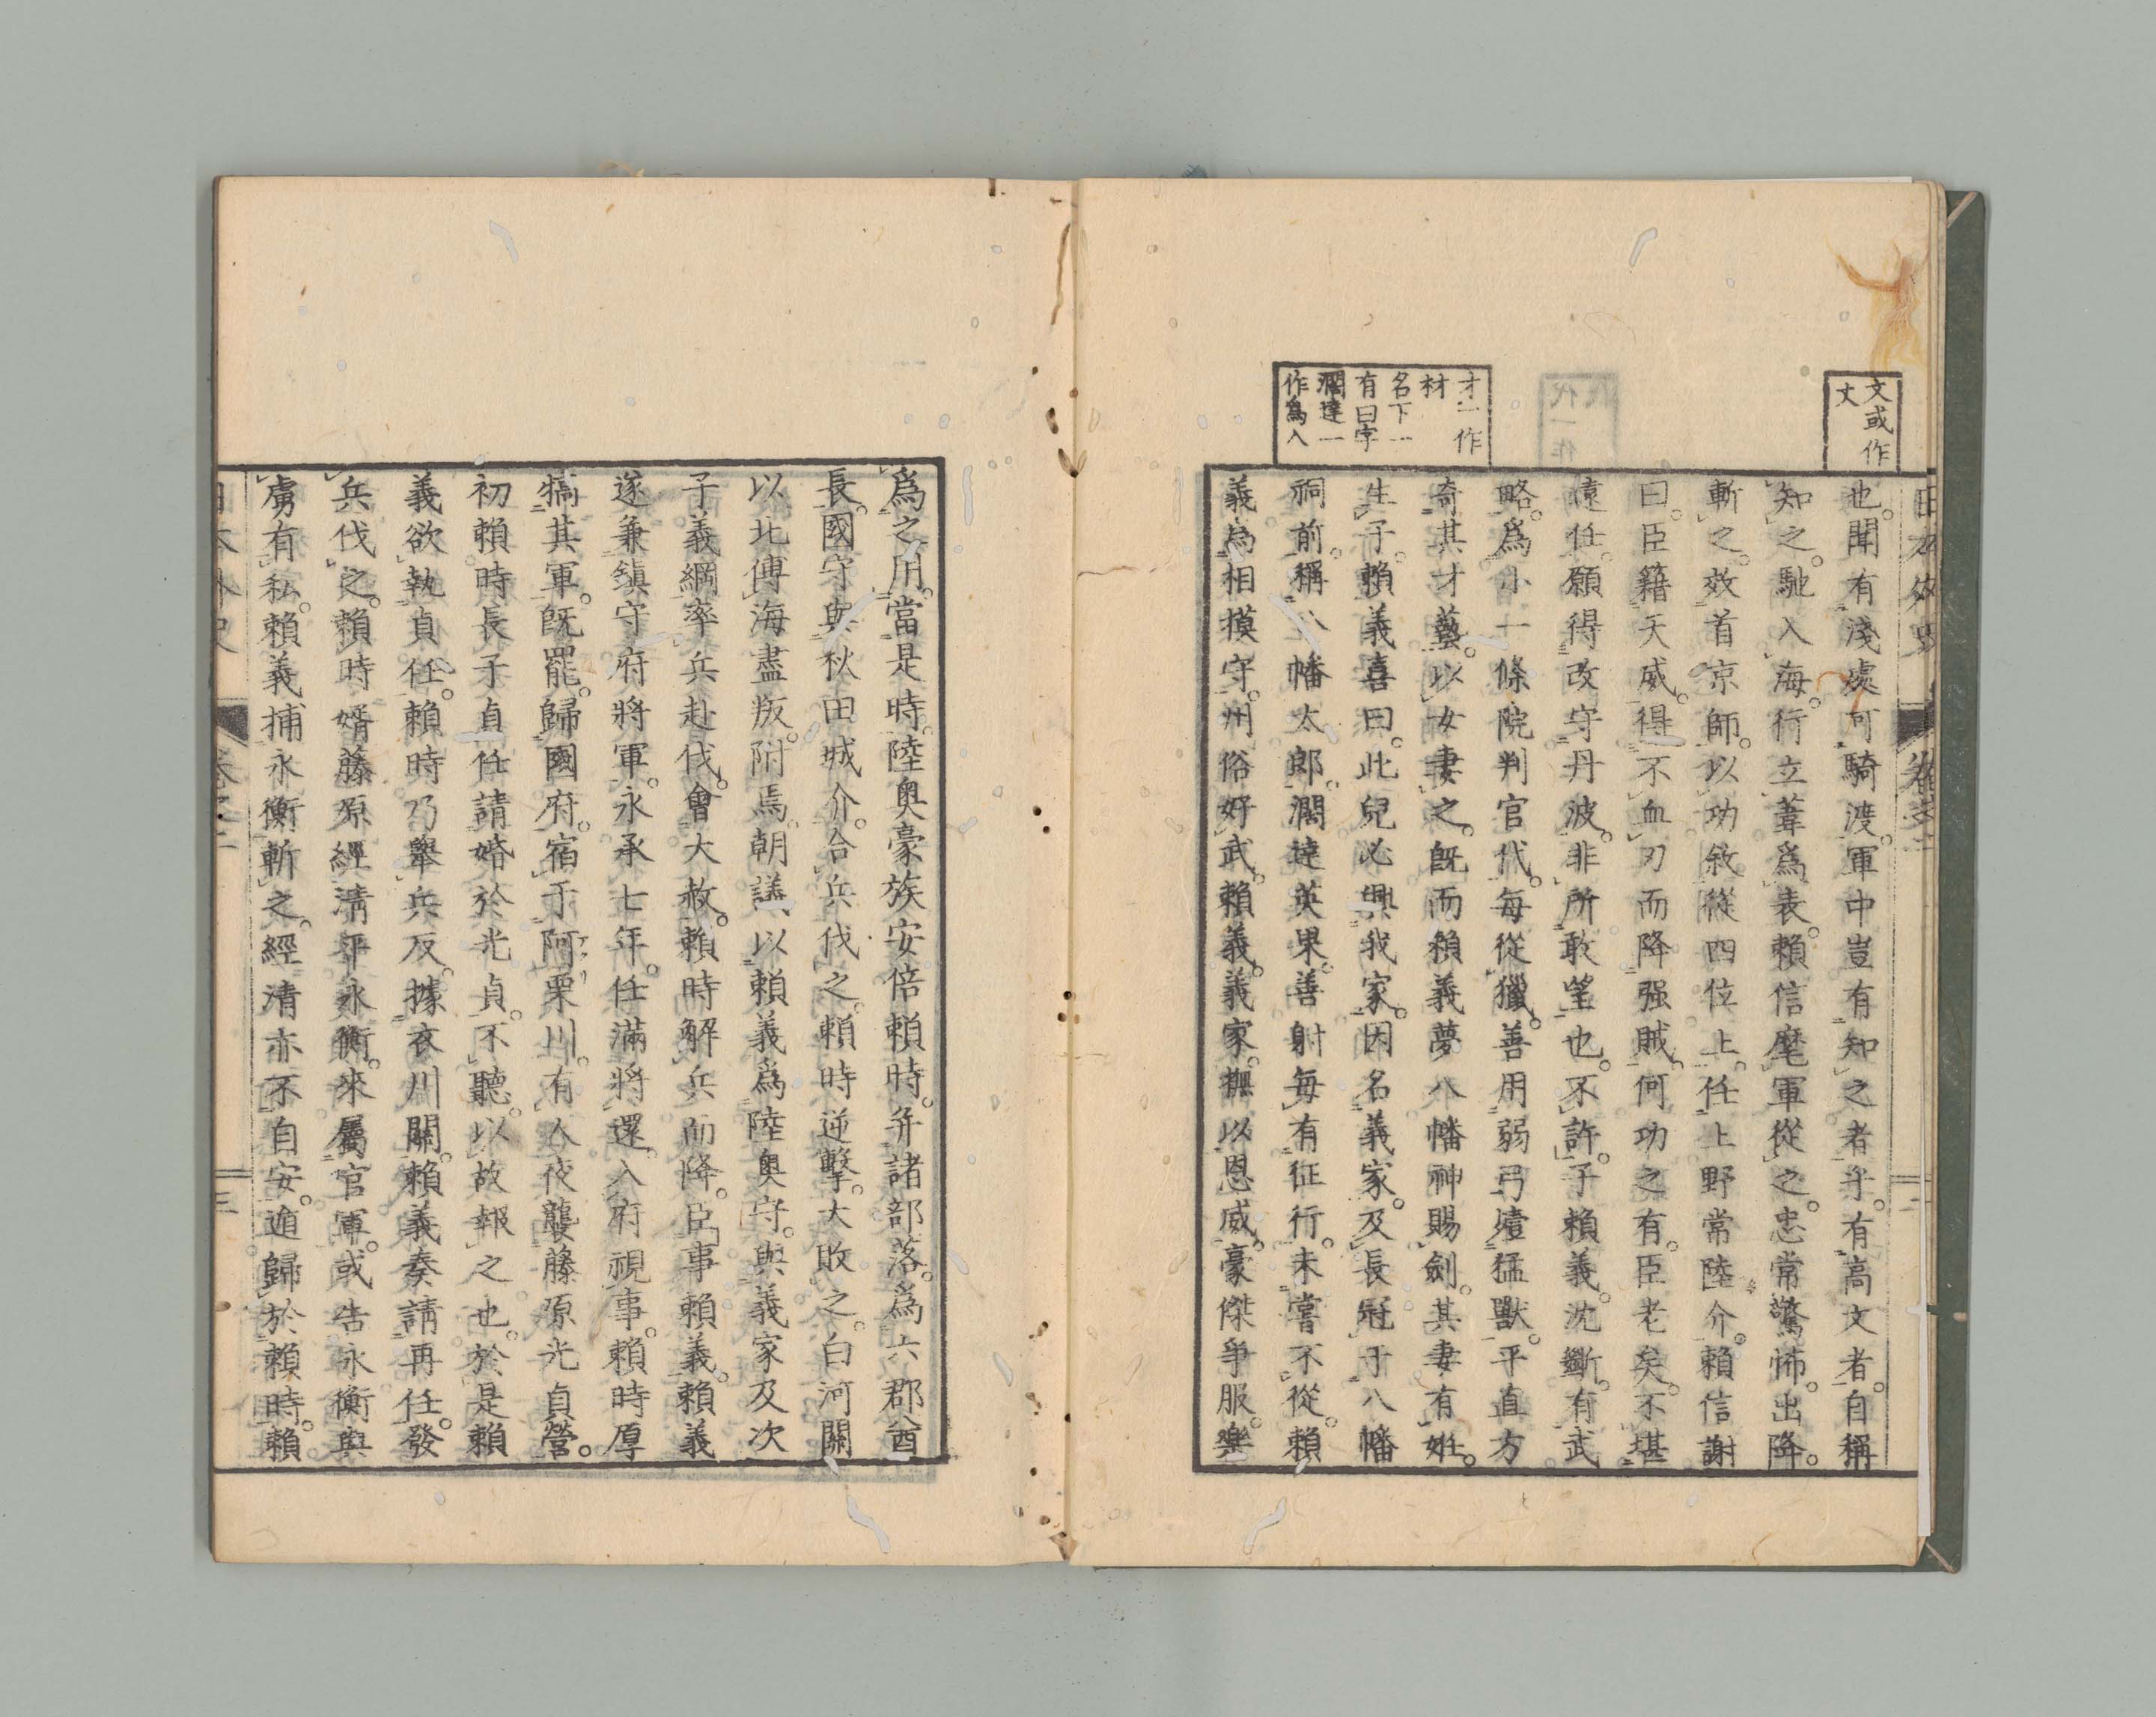 文或作
丈
才一作
材
名下一
有曰字
濶達一
作爲人
也。聞有淺處可騎渡。軍中豈有知之者乎。有高文者。自稱
知之。馳入海。行立葦爲表。賴信麾軍從之。忠常驚怖。出降。
斬之。效首京師。以功敘從四位上。任上野常陸介。賴信謝
曰。臣籍天威。得不血刃而降强賊。何功之有。臣老矣。不堪
遠任。願得改守丹波。非所敢望也。不許。子賴義。沈斷有武
略。爲小一條院判官代。每從獵。善用弱弓殪猛獸。平直方
奇其才藝。以女妻之。既而賴義夢八幡神賜劍。其妻有娠。
生子。賴義喜曰。此兒必興我家。因名義家。及長冠于八幡
祠前。稱八幡太郎。濶達英果。善射每有征行。未嘗不從。賴
義爲相摸守。州俗好武。賴義義家。撫以恩威。豪傑爭服。樂
爲之用。當是時。陸奧豪族安倍賴時。并諸部落。爲六郡酋
長。國守與秋田城介。合兵伐之。賴時逆擊。大敗之。白河關
以北傅海盡叛附焉。朝議以賴義爲陸奧守。與義家及次
子義綱率兵赴伐。會大赦。賴時解兵而降。臣事賴義。賴義
遂兼鎭守府將軍。永承七年。任滿將還。入府視事。賴時厚
犒其軍。既罷歸國府。宿于阿栗川。有人夜襲藤原光貞營。
初賴時長子貞任請婚於光貞。不聽。以故報之也。於是賴
義欲執貞任。賴時乃舉兵反。據衣川關。賴義奏請再任。發
兵伐之。賴時婿藤原經淸平永衡。來屬官軍。或告永衡與
虜有私。賴義捕永衡斬之。經淸亦不自安。逃歸於賴時。賴
三